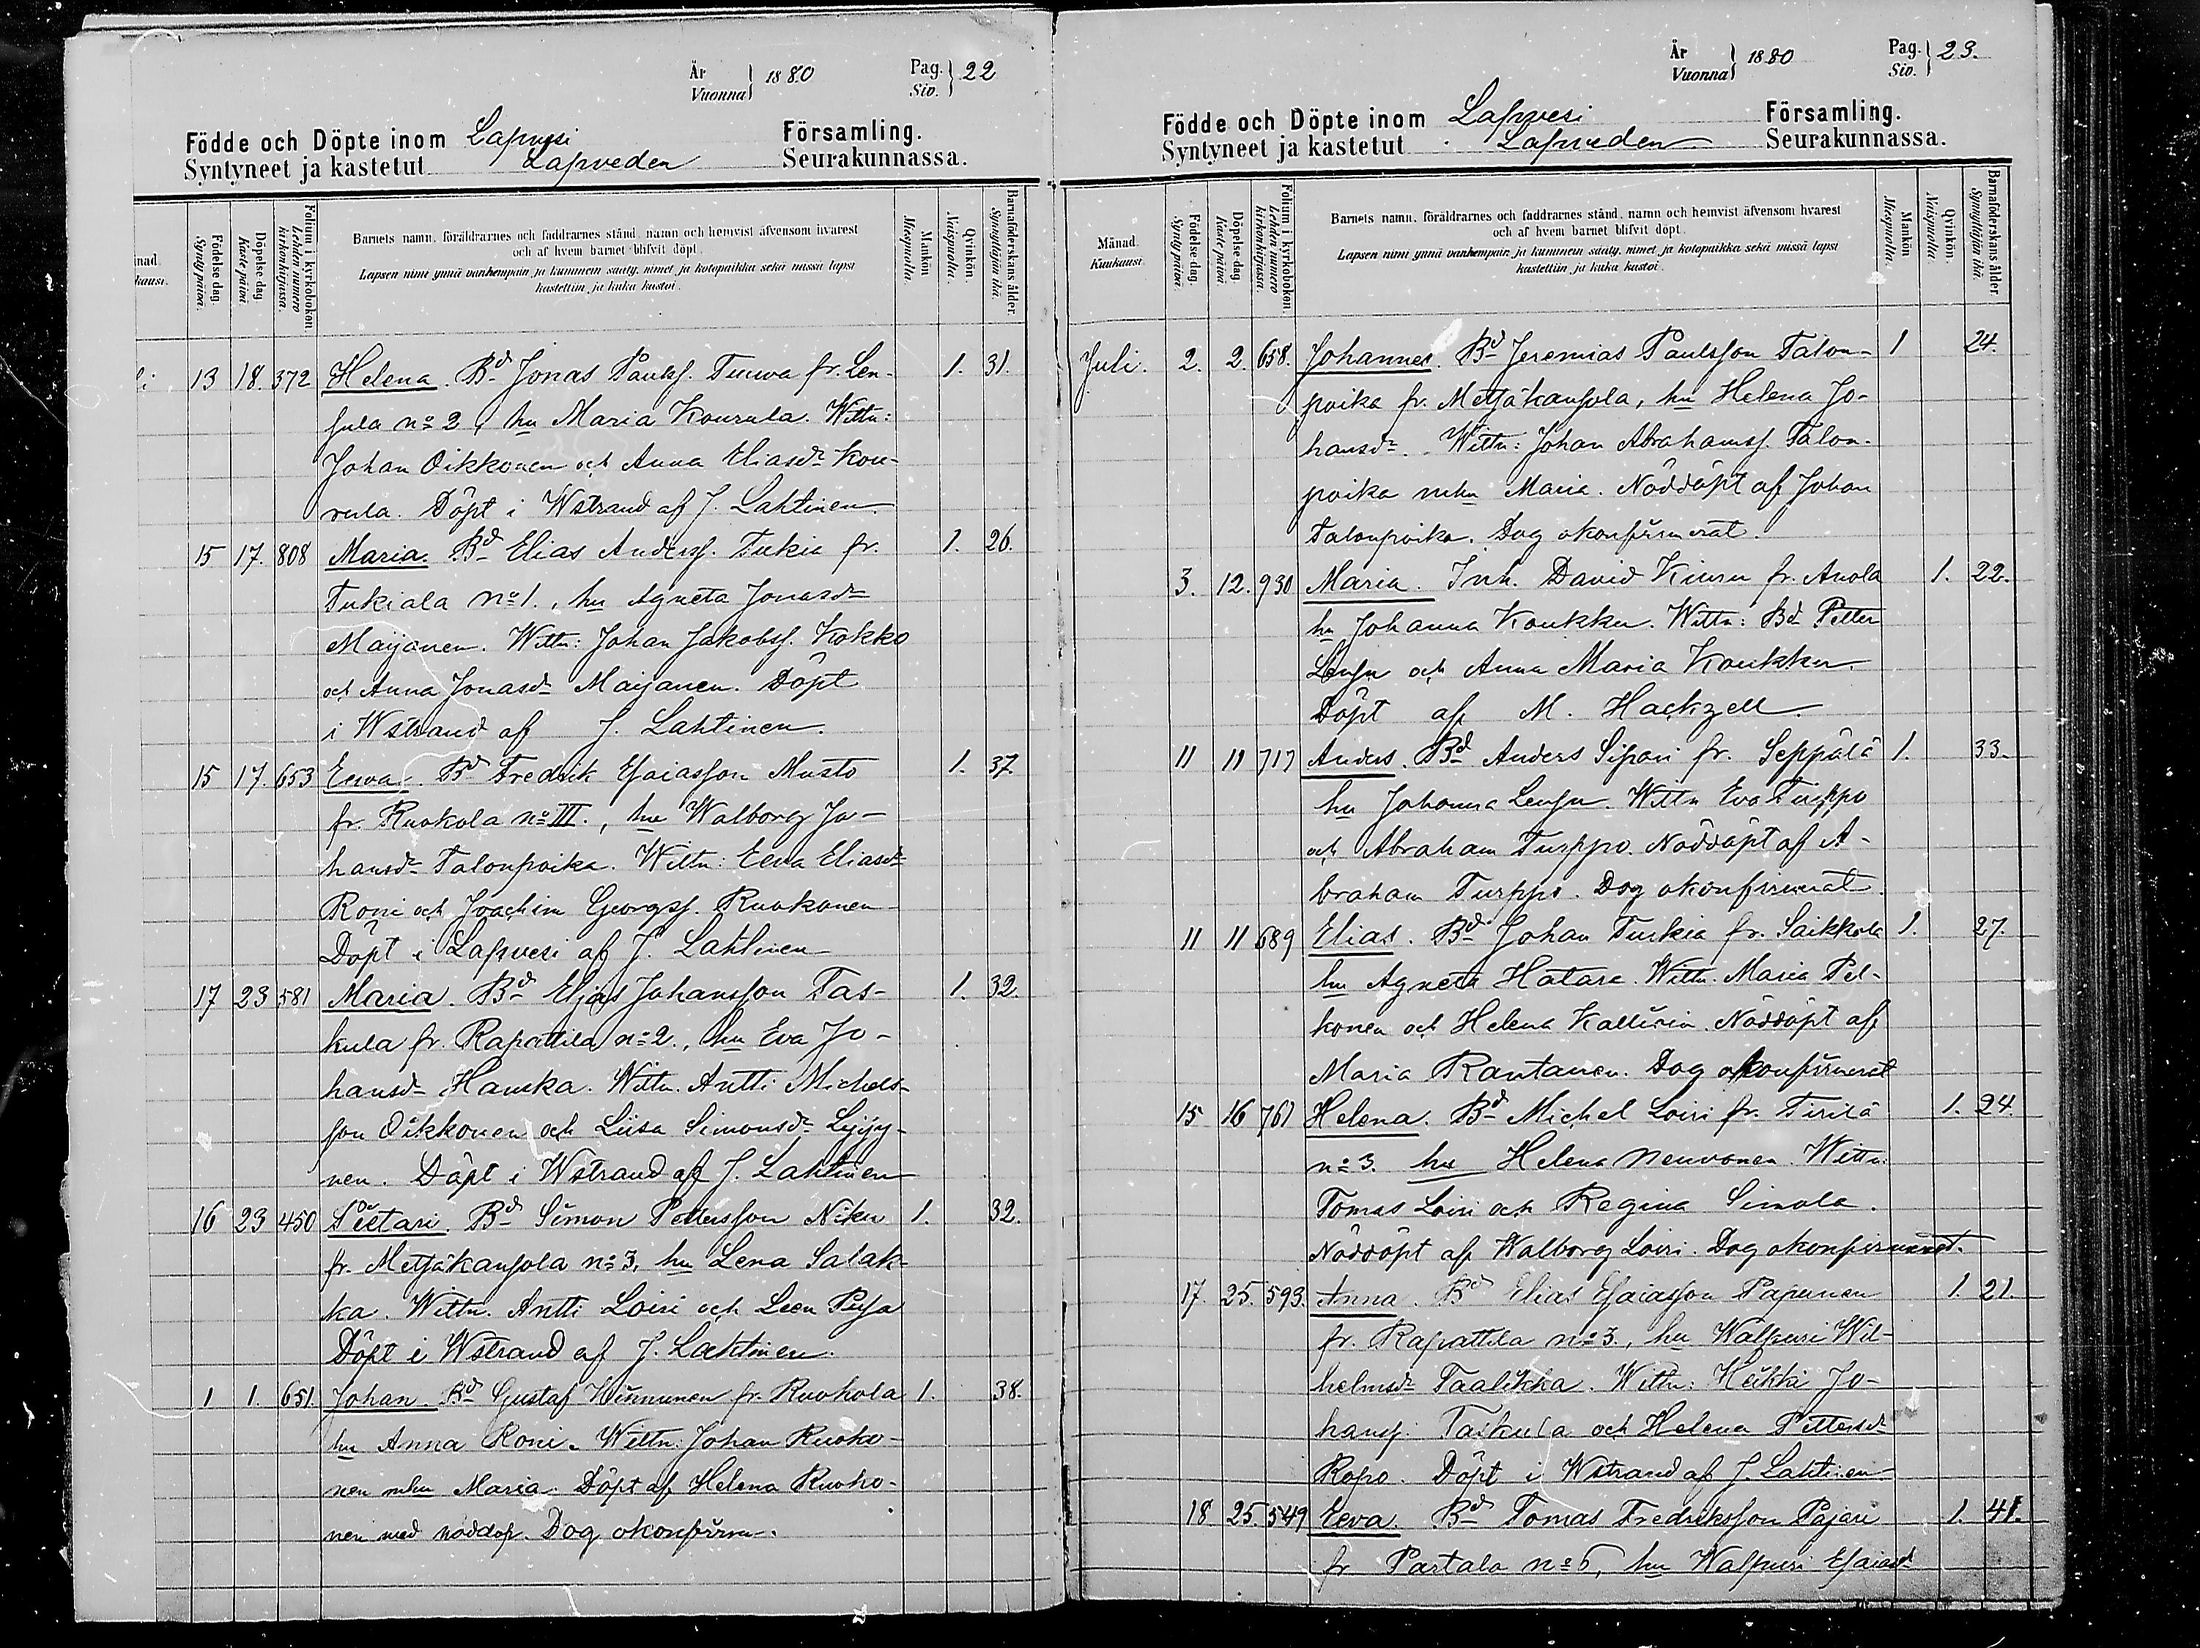 År
Vuonna } 1880
Pag.
Siv. } 22
Födde och Döpte inom Lapvesi Församling.
Syntyneet ja kastetut Lapveden Seurakunnassa.
nad.
kausi.
Födelse dag.
Synty päivä.
Döpelse dag
Kaste päivä.
Folium i kyrkoboken.
Lehden numero kirkonkirjassa.
Barnets namn, föräldrarnes och faddrarnes stånd, namn och hemvist äfvensom hvarest
och af hvem barnet blifvit döpt.
Lapsen nimi ynnä vanhempain ja kummein sääty, nimet ja kotopaikka sekä missä lapsi
kastettiin ja kuka kastoi.
Mankön
Miespuolta.
Qvinkön.
Naispuolta.
Barnaföderskans ålder.
Synnyttäjän ikä.
li 13 18. 372 Helena. Bd Jonas Paulss. Turwa fr. Len- 1. 31.
sula no 2, hu Maria Kourula. Wittn:
Johan Oikkonen och Anna Eliasdr Kou-
rula. Döpt i Wstrand af J. Lahtinen
15 17. 808 Maria. Bd Elias Anderss. Tukia fr. 1. 26.
Tukiala No 1., hu Agneta Jonasdr
Maijanen. Wittn: Johan Jakobss. Kokko
och Anna Jonasdr Maijanen. Döpt
i Wstrand af J. Lahtinen.
15 17. 653 Eewa. Bd Fredrik Esaiasson Musto 1. 37.
fr. Ruokola no III., hu Walborg Jo-
hansdr Talonpoika. Wittn: Eeva Eliasdr
Roni och Joachim Georgss. Ruokonen
Döpt i Lapvesi af J. Lahtinen
17 23 581 Maria. Bd Elias Johansson Tas- 1. 32.
kula fr. Rapattila no 2., hu Eva Jo-
hansdr Hanska. Wittn. Antti Michels-
son Oikkonen och Liisa Simonsdr Lyijy-
nen. Döpt i Wstrand af J. Lahtinen
16 23 450 Pietari. Bd Simon Pettersson Niku 1. 32.
fr. Metsäkansola no 3, hu Lena Salak-
ka. Wittn. Antti Loiri och Leen Pusa
Döpt i Wstrand af J. Lahtinen.
1 1. 651. Johan. Bd Gustaf Hinnunen fr. Ruohola 1. 38.
hu Anna Roni. Wittn: Johan Ruoko-
nen mhu Maria. Döpt af Helena Ruoko-
nen med nöddop. Dog okonfirm.
År
Vuonna } 1880
Pag.
Siv. } 23.
Födde och Döpte inom Lapvesi Församling.
Syntyneet ja kastetut Lapveden Seurakunnassa.
Månad.
Kuukausi.
Födelse dag.
Synty päivä.
Döpelse dag
Kaste päivä
Folium i kyrkoboken.
Lehden numero kirkonkirjassa.
Barnets namn, föräldrarnes och faddrarnes stånd, namn och hemvist äfvensom hvarest
och af hvem barnet blifvit döpt.
Lapsen nimi ynnä vanhempain ja kummein sääty, nimet ja kotopaikka sekä missä lapsi
kastettiin ja kuka kastoi.
Mankön
Miespuolta.
Qvinkön.
Naispuolta.
Barnaföderskans ålder.
Synnyttäjän ikä.
Juli. 2. 2. 658. Johannes. Bd Jeremias Paulsson Talon- 1 24.
poika fr. Metsäkansola, hu Helena Jo-
hansdr. Wittn: Johan Abrahamss. Talon-
poika mhu Maria. Nöddöpt af Johan
Talonpoika. Dog okonfirmerat.
3. 12. 930 Maria. Inh. David Kiuru fr. Anola 1. 22.
hu Johanna Koukku. Wittn: Bd Petter
Lensu och Anna Maria Koukku.
Döpt af M. Hackzell.
11 11 717 Anders. Bd Anders Sipari fr. Seppälä 1. 33.
hu Johanna Lensu. Wittn Eva Turppo
och Abraham Turppo. Nöddöpt af A-
braham Turppo. Dog okonfirmerat.
11 11 689 Elias. Bd Johan Turkia fr. Saikkola 1. 27.
hu Agneta Hatara. Wittn. Maria Pel-
konen och Helena Kallurin. Nöddöpt af
Maria Rantanen. Dog okonfirmerat
15 16 761 Helena. Bd Michel Loiri fr. Tirilä 1. 24
no 3. hu Helena Neuvonen. Wittn.
Tomas Loiri och Regina Simola.
Nöddöpt af Walborg Loiri. Dog okonfirmerat.
17. 25. 593. Anna. Bd Elias Esaiasson Papunen 1. 21.
fr. Rapattila no 3., hu Walpuri Wil-
helmsdr Taalikka. Wittn: Heikki Jo-
hanss. Taskula och Helena Pettersdr
Ropo. Döpt i Wstrand af J. Lahtinen
18. 25. 549 Eeva. Bd Tomas Fredriksson Pajari 1. 41.
fr Partala no 5, hu Walpuri Esaiasdr